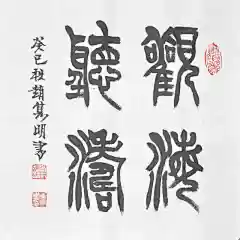 觀海
聽濤
癸巳程類篤明書